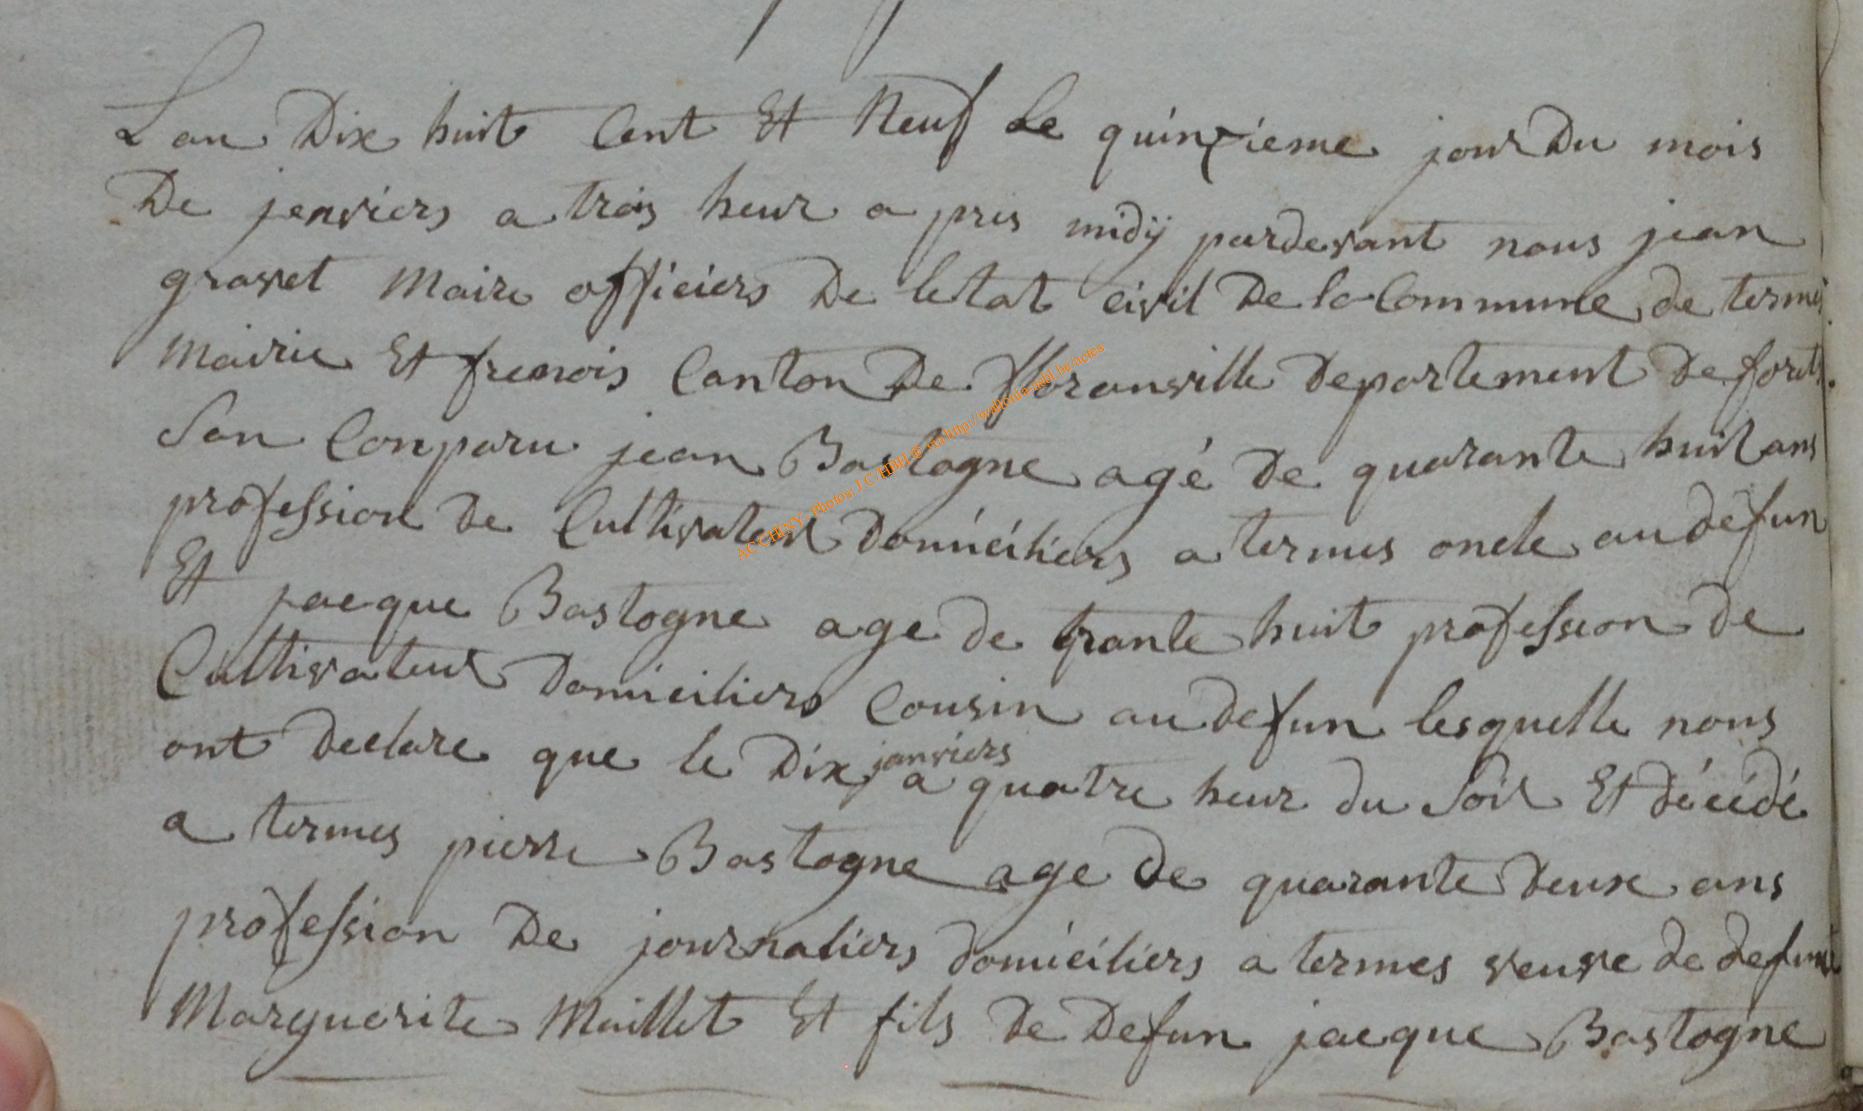 Lan Dix huit Cent Et Neuf Le quinzieme jour Du mois
De jenviers a trois heur a pres midÿ pardevant nous jean
gravet Maire officiers De letat civil De la Commune de termes
Mairie Et frenois Canton De floranville Departement De forets
Son Conparu jean Bastogne agé De quarante huit ans
profession De Cultivateur Domiciliers a termes oncle au defun
Et jacque Bastogne age de trante huit profession De
Cultivateur Domiciliers Cousin au defun lesquelle nous
ont declare que le Dix janviers a quatre heur du Soir Et décédé
a termes pierre Bastogne age De quarante Deux ans
profession De journaliers domiciliers a termes veuve de defunt
Marguerite Maillet Et fils De Defun jacque Bastogne